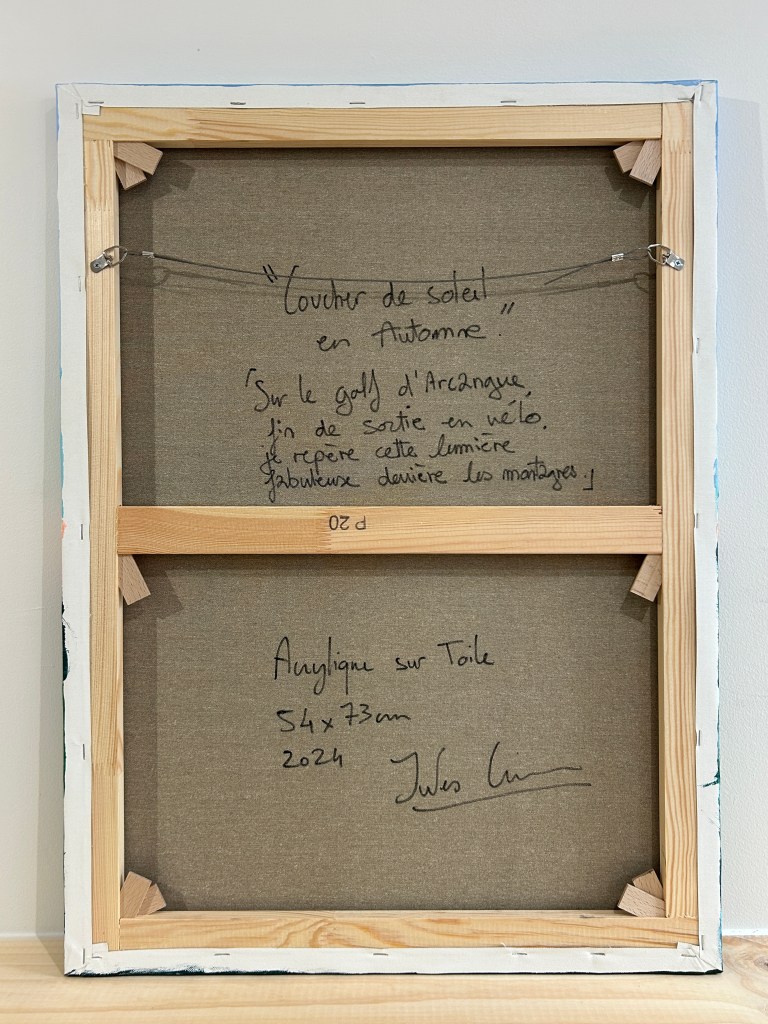 "Coucher de soleil
en Automne."
"Sur le golf d'Arcangue,
fin de sortie en vélo,
je repère cette lumière
fabuleuse derrière les montagnes."
P 20
Acrylique sur Toile
54x73cm
2024
Yves